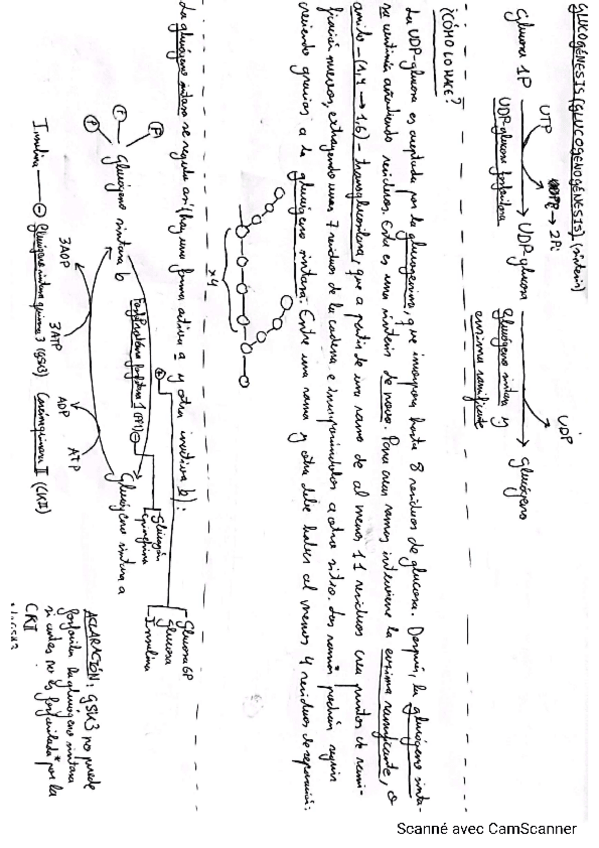 GLUCOGÉNESIS (GLUCOGENOGÉNESIS) (síntesis)
UTP → 2Pi UDP
Glucosa 1P → UDP-glucosa → Glucógeno
UDP-glucosa fosforilasa Glucógeno sintasa y
enzima ramificante
¿CÓMO LO HACE?
La UDP-glucosa es aceptada por la glucogenina, que incorpora hasta 8 residuos de glucosa. Después, la glucógeno sinta-
sa continúa añadiendo residuos. Esta es una síntesis de novo. Para crear ramas interviene la enzima ramificante, o
amilo-(1,4 → 1,6)-transglucosilasa, que a partir de una rama de al menos 11 residuos crea puntos de rami-
ficación nuevos, extrayendo unos 7 residuos de la cadena e incorporándolos a otro sitio. Las ramas podrán seguir
creciendo gracias a la glucógeno sintasa. Entre una rama y otra debe haber al menos 4 residuos de separación:
x4
La glucógeno sintasa se regula así (hay una forma activa a y otra inactiva b):
Glucosa 6P
Glucosa
Insulina
Glucagón
epinefrina
Fosfoproteína fosfatasa 1 (PP1)
P P P
Glucógeno sintasa b Glucógeno sintasa a
3ADP 3ATP ADP ATP
Insulina Glucógeno sintasa quinasa 3 (GSK3) Caseína quinasa II (CKII)
ACLARACIÓN: GSK3 no puede
fosforilar la glucógeno sintasa
si antes no es fosforilada* por la
CKII
Scanné avec CamScanner